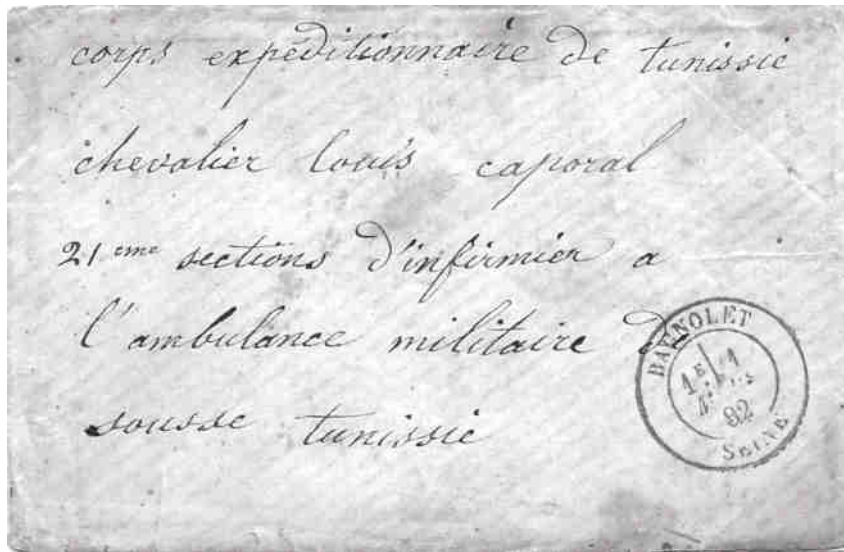 corps expeditionnaire de tunissie
chevalier louis caporal
21 eme sections d'infirmier a
l'ambulance militaire de
sousse tunissie
BAGNOLET
1E
82
SEINE